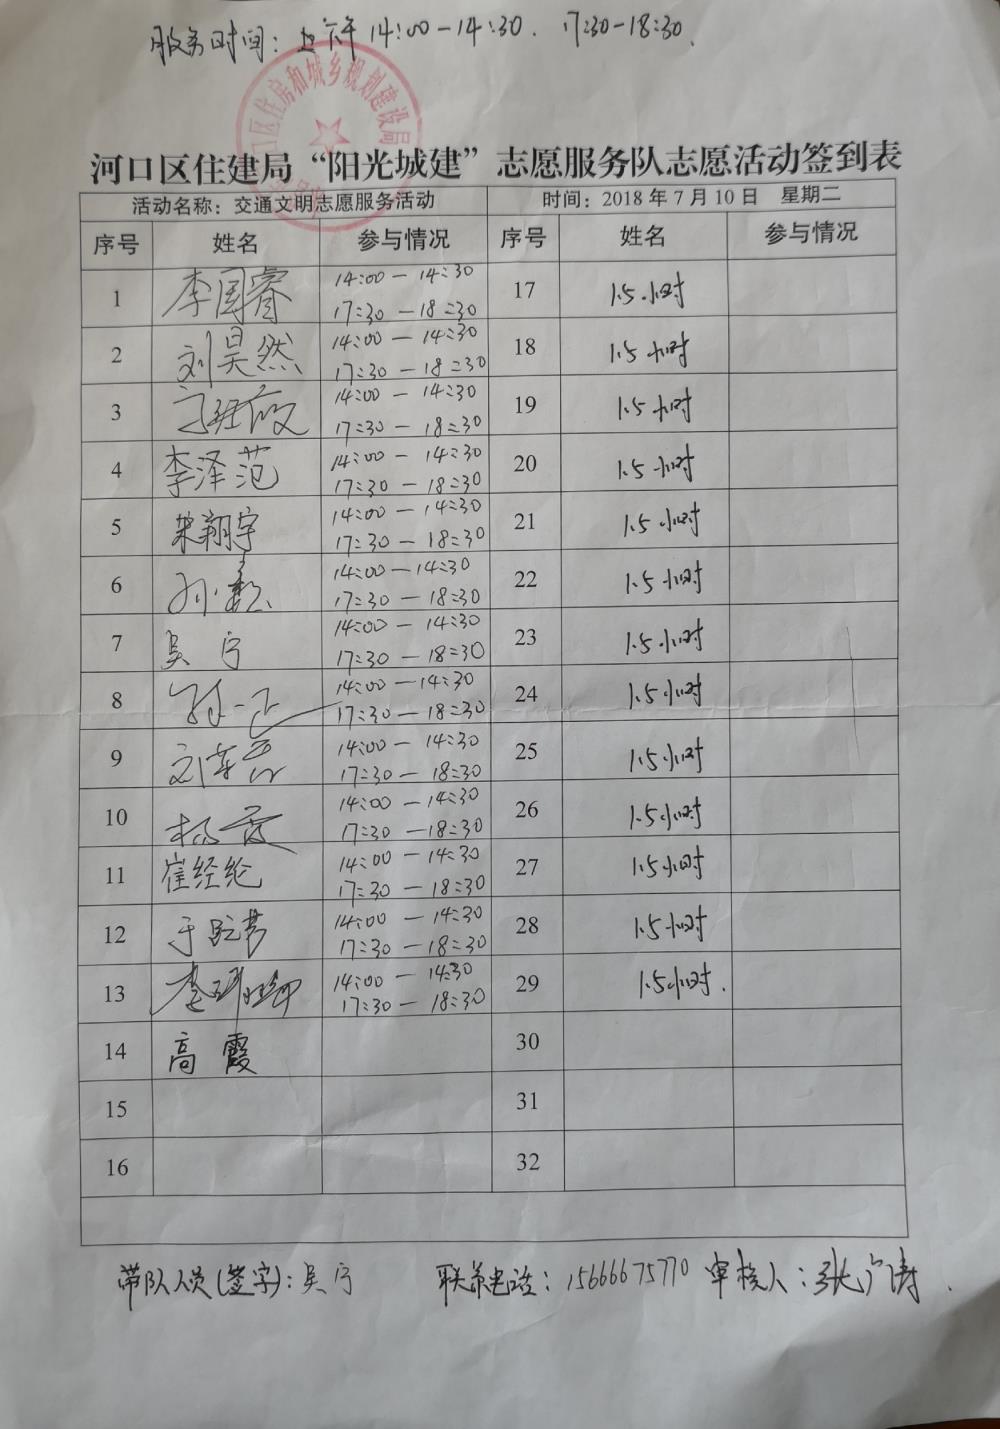 服务时间：下午 14:00-14:30. 17:30-18:30.
口区住房和城乡规划建设局
河口区住建局“阳光城建”志愿服务队志愿活动签到表
活动名称：交通文明志愿服务活动 时间：2018年7月10日 星期二
序号 姓名 参与情况 序号 姓名 参与情况
1 李国睿 14:00-14:30 17:30-18:30 17 1.5小时
2 刘昊然 14:00-14:30 17:30-18:30 18 1.5小时
3 14:00-14:30 17:30-18:30 19 1.5小时
4 李泽范 14:00-14:30 17:30-18:30 20 1.5小时
5 朱翔宇 14:00-14:30 17:30-18:30 21 1.5小时
6 14:00-14:30 17:30-18:30 22 1.5小时
7 吴宁 14:00-14:30 17:30-18:30 23 1.5小时
8 14:00-14:30 17:30-18:30 24 1.5小时
9 14:00-14:30 17:30-18:30 25 1.5小时
10 14:00-14:30 17:30-18:30 26 1.5小时
11 崔经纶 14:00-14:30 17:30-18:30 27 1.5小时
12 14:00-14:30 17:30-18:30 28 1.5小时
13 14:00-14:30 17:30-18:30 29 1.5小时.
14 高霞 30
15 31
16 32
带队人员(签字):吴宁 联系电话：15666675770 审核人：张广涛.